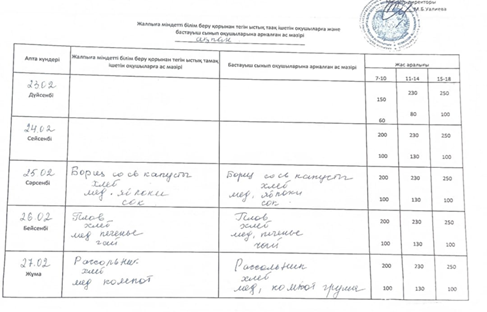 директоры
М.Б.Уалиева
Жалпыға міндетті білім беру қорынан тегін ыстық тамақ ішетін оқушыларға және
бастауыш сынып оқушыларына арналған ас мәзірі
Апта күндері
Жалпыға міндетті білім беру қорынан тегін ыстық тамақ ішетін оқушыларға ас мәзірі
Бастауыш сынып оқушыларына арналған ас мәзірі
Жас аралығы
7-10 11-14 15-18
23.02
Дүйсенбі
230 250
150
80 100
60
24.02
Сейсенбі
200 230 250
100 130 100
25.02
Сәрсенбі
Борщ со св капусты
хлеб
мед, яблоки
сок
Борщ со св капусты
хлеб
мед, яблоки
сок
200 230 250
100 130 100
26.02
Бейсенбі
Плов
хлеб
мед печенье
чай
Плов
хлеб
мед, печенье
чай
200 230 250
100 130 100
27.02
Жұма
Рассольник
хлеб
мед компот
Рассольник
хлеб
мед, компот груша
200 230 250
100 130 100